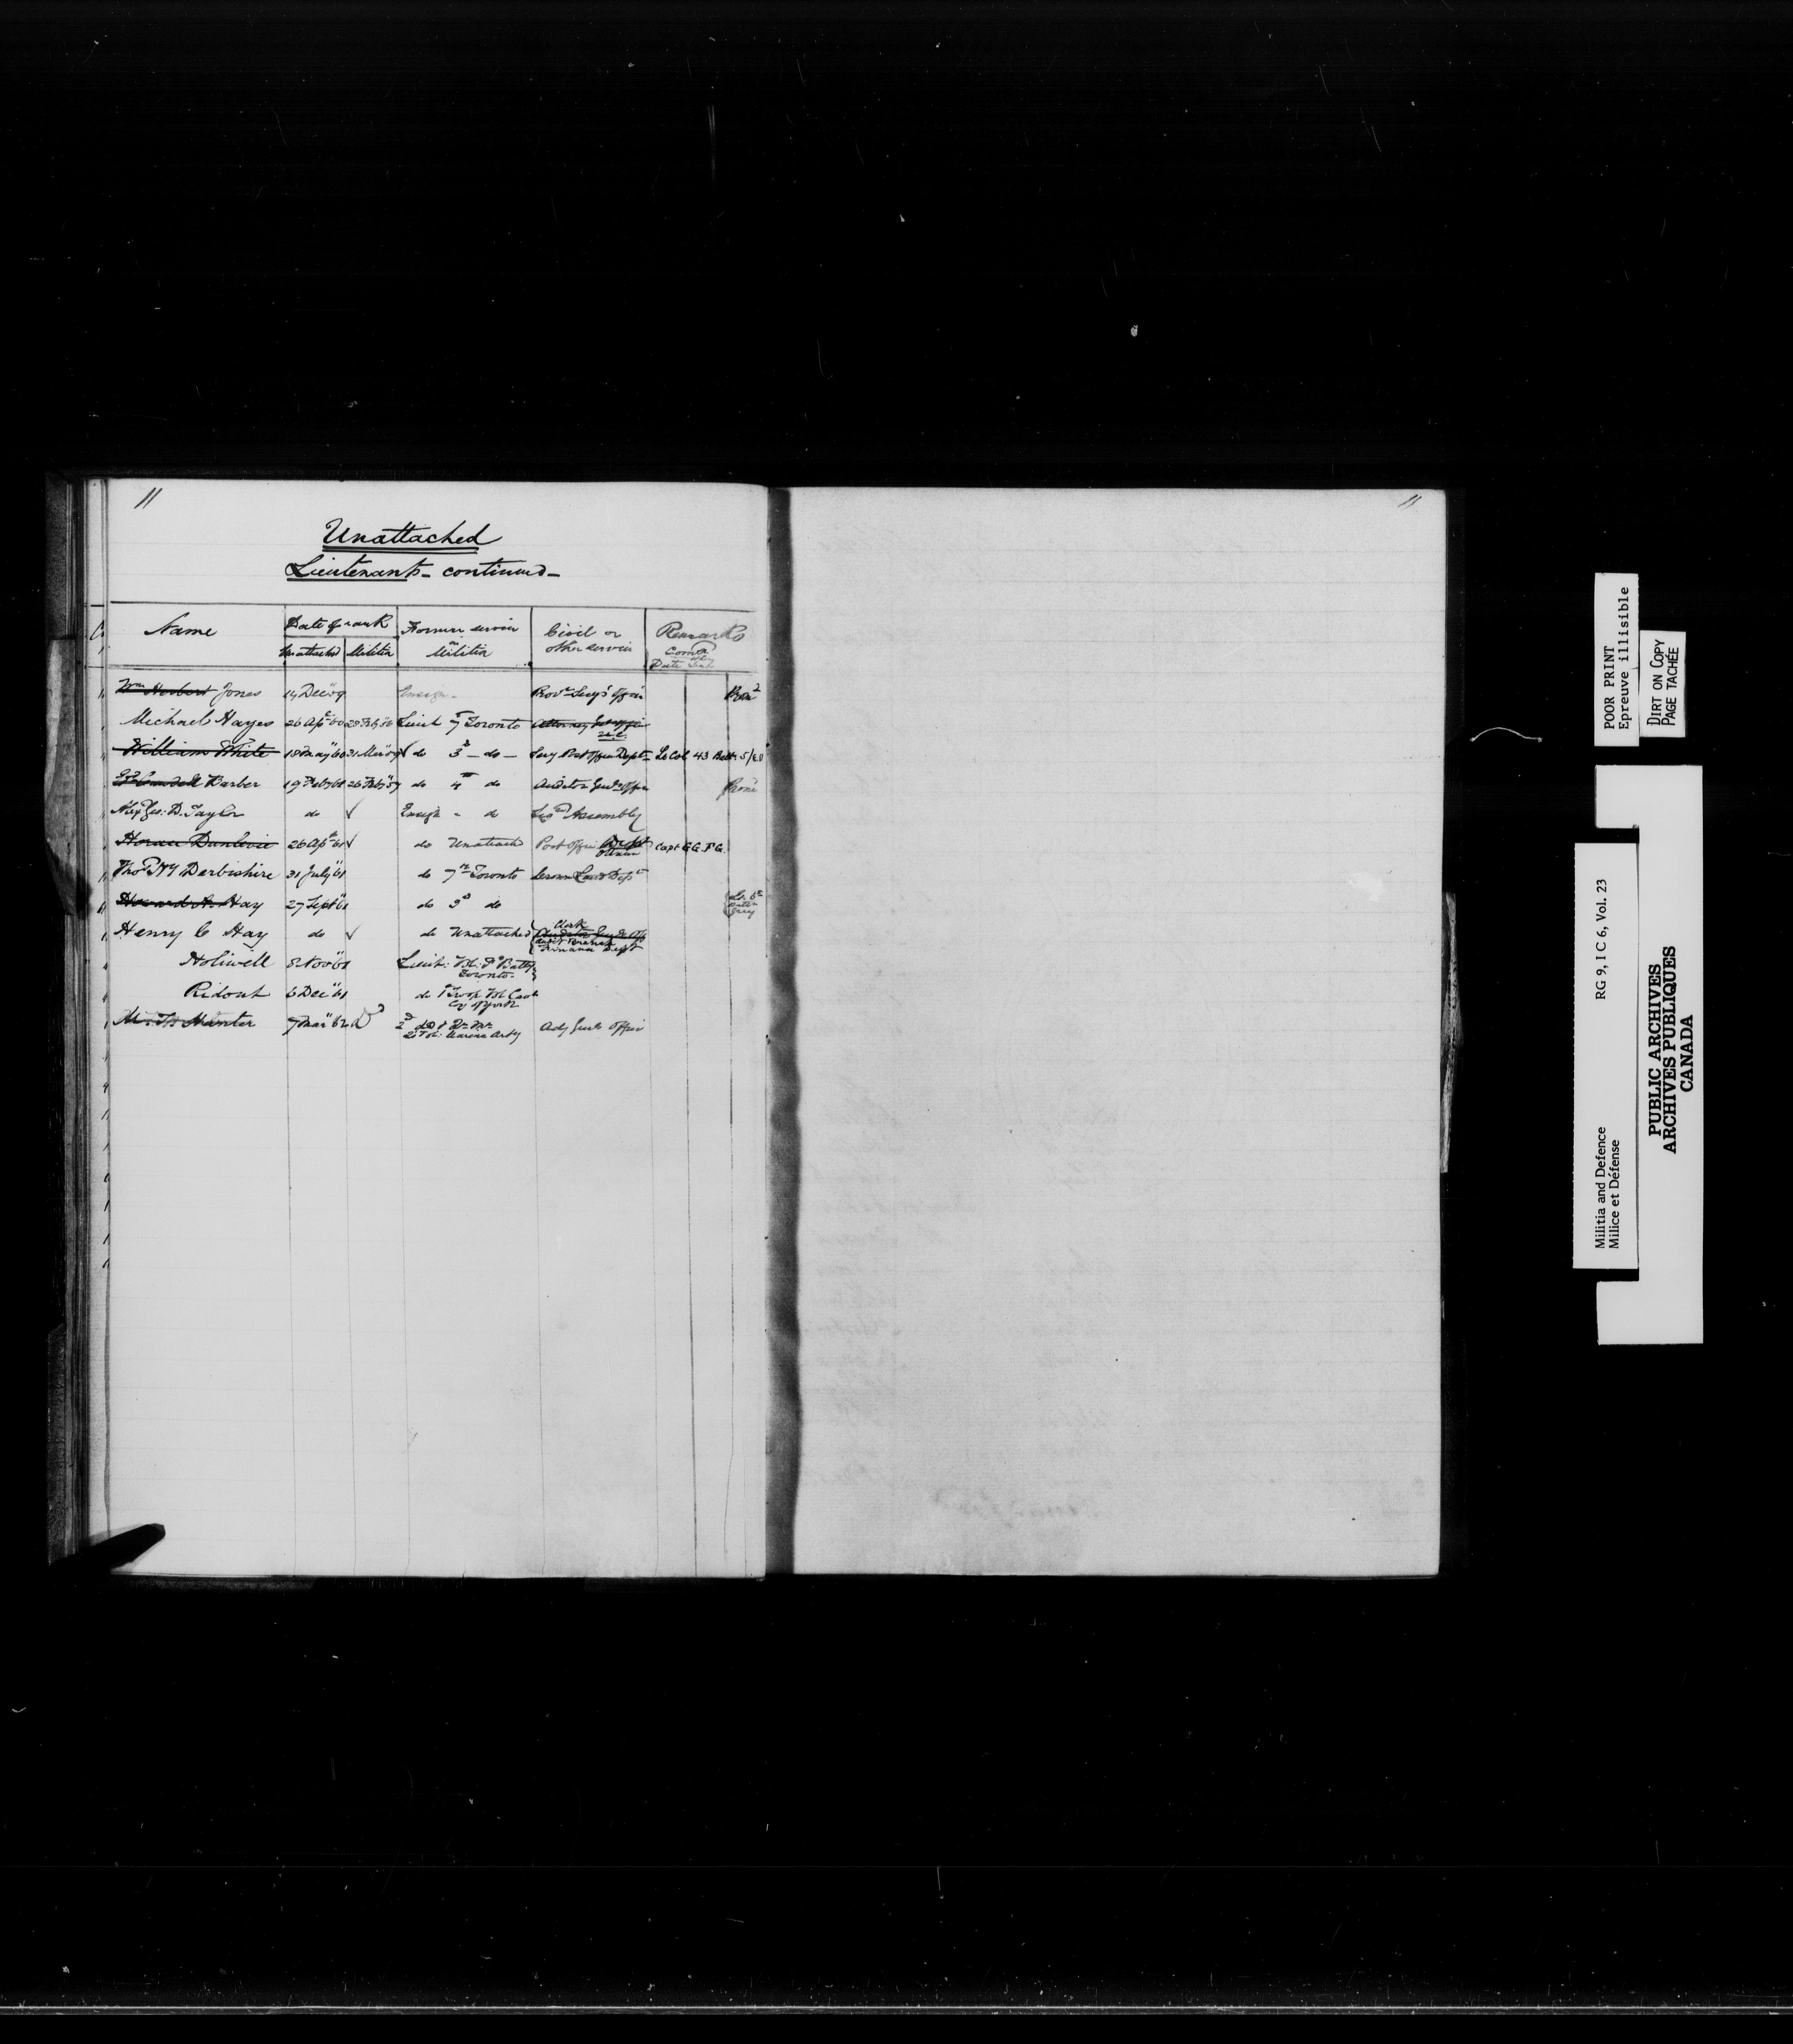 11
11
Unattached
Lieutenants - continued -
Name Date of rank Former service Civil or Remarks
Unattached Militia Militia other service
Date
Wm Herbert Jones 14 Decr 59 Ensign - Provl Secy's Office
Michael Hayes 26 Apl 60 28 Feby 56 Lieut 7 Toronto Attorney
William White 18 May 60 31 Mar 59 do 3d - do - Secy Post Office Dept - Lt Col 43 Battn
Barber 19 Feby 61 26 Feby 57 do 4th do Auditor Genls Office
Alexr Geo: D. Taylor do ✓ Ensign - do Assembly
Horace Dunlevie 26 Apl 61 ✓ do Unattach Post Office Dept Capt G.G.F.G.
Ottawa
Thos Derbishire 31 July 61 do 7th Toronto Crown Land Dept
Howard A. Hay 27 Sept 61 do 3d do
Henry C Hay do ✓ do Unattached Clerk
Audit Branch
Finance Dept
Holiwell 8 Nov 61 Lieut: Batty
Toronto -
Ridout 6 Decr 61 do 1 Troop Vol Cavl
Co of York
Hunter 7 Mar 62 2d
Marine Arty Adj Genls Office
POOR PRINT
Epreuve illisible
DIRT ON COPY
PAGE TACHÉE
RG 9, I C 6, Vol. 23
Militia and Defence
Milice et Défense
PUBLIC ARCHIVES
ARCHIVES PUBLIQUES
CANADA